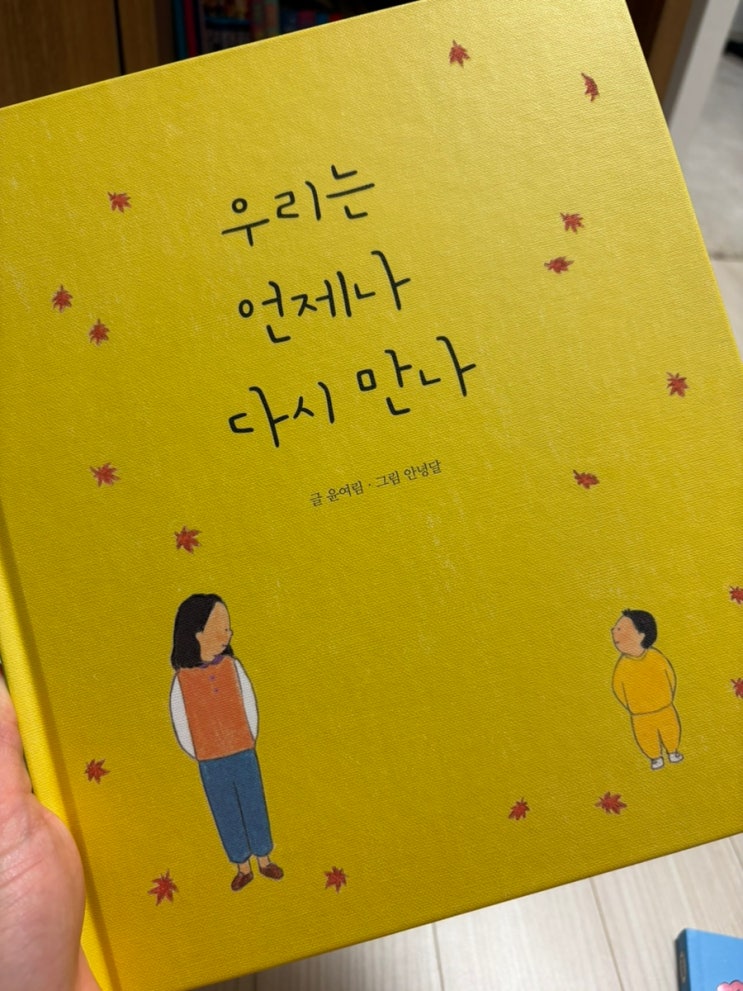 우리는
언제나
다시 만나
글 윤여림 · 그림 안녕달